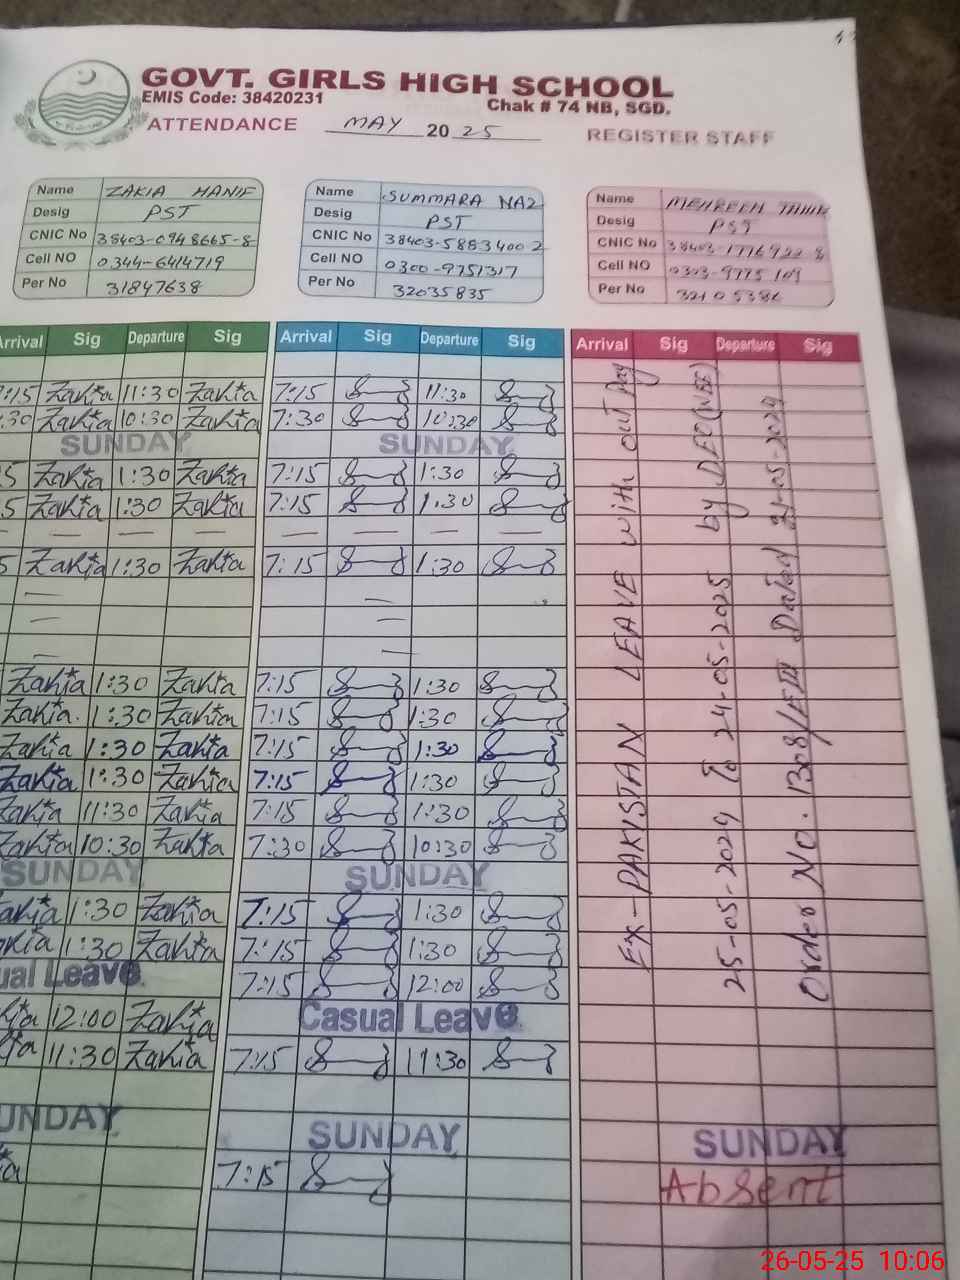 GOVT. GIRLS HIGH SCHOOL
EMIS Code: 38420231 Chak # 74 NB, SGD.
ATTENDANCE MAY 2025 REGISTER STAFF
Name ZAKIA HANIF
Desig PST
CNIC No 38403-0948665-8
Cell NO 0344-6414719
Per No 31847638
Name SUMMARA NAZ
Desig PST
CNIC No 38403-5883400 2
Cell NO 0300-9751317
Per No 32035835
Name MEHREEN
Desig PST
CNIC No 38403-1776922 8
Cell NO
Per No
Arrival Sig Departure Sig Arrival Sig Departure Sig Arrival Sig Departure Sig
7:15 Zakia 11:30 Zakia 7:15 11:30
:30 Zakia 10:30 Zakia 7:30 10:30
SUNDAY SUNDAY
5 Zakia 1:30 Zakia 7:15 1:30
5 Zakia 1:30 Zakia 7:15 1:30
— — — — — — —
5 Zakia 1:30 Zakia 7:15 1:30
— —
—
— —
Zakia 1:30 Zakia 7:15 1:30
Zakia. 1:30 Zakia 7:15 1:30
Zakia 1:30 Zakia 7:15 1:30
Zakia 1:30 Zakia 7:15 1:30
Zakia 11:30 Zakia 7:15 1:30
Zakia 10:30 Zakia 7:30 10:30
SUNDAY SUNDAY
akia 1:30 Zakia 7:15 1:30
akia 1:30 Zakia 7:15 1:30
ual Leave. 7:15 12:00
kia 12:00 Zakia Casual Leave.
ia 11:30 Zakia 7:15 11:30
UNDAY SUNDAY SUNDAY
ia 7:15 Absent
Ex-PAKISTAN LEAVE with out Pay
25-05-2024 To 24-05-2025 by DEO(WEE)
Order No. 1308/E III Dated 21-05-2024
26-05-25 10:06